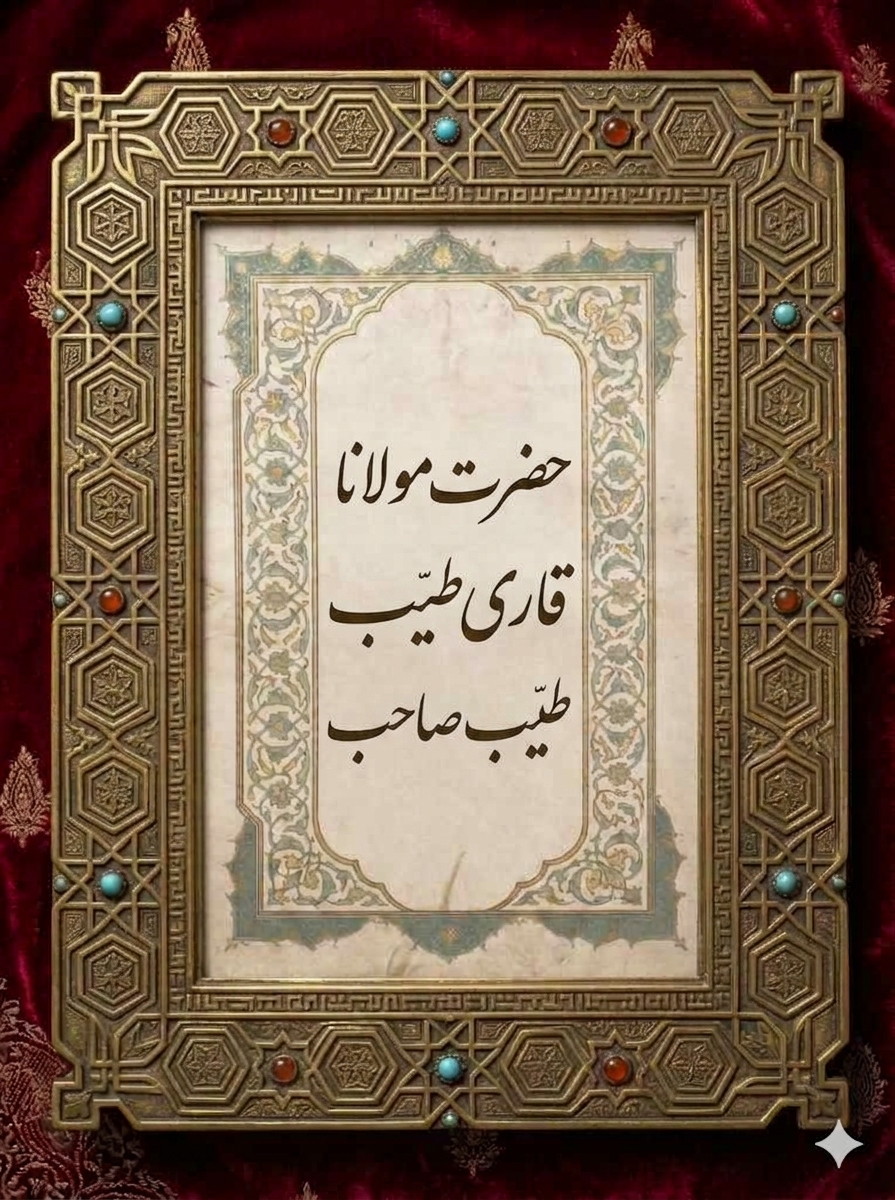 حضرت مولانا
قاری طیّب
طیّب صاحب